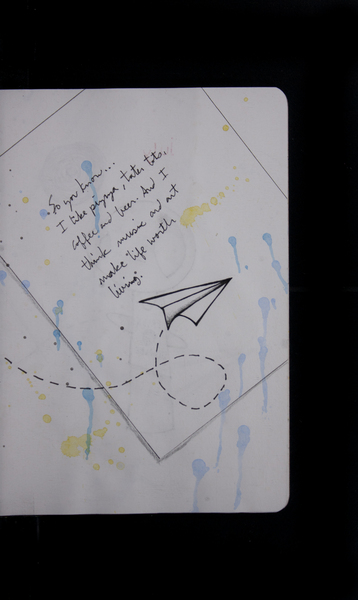 So you know...
I like pizza, tater tots,
coffee and beer. And I
think music and art
make life worth
living.